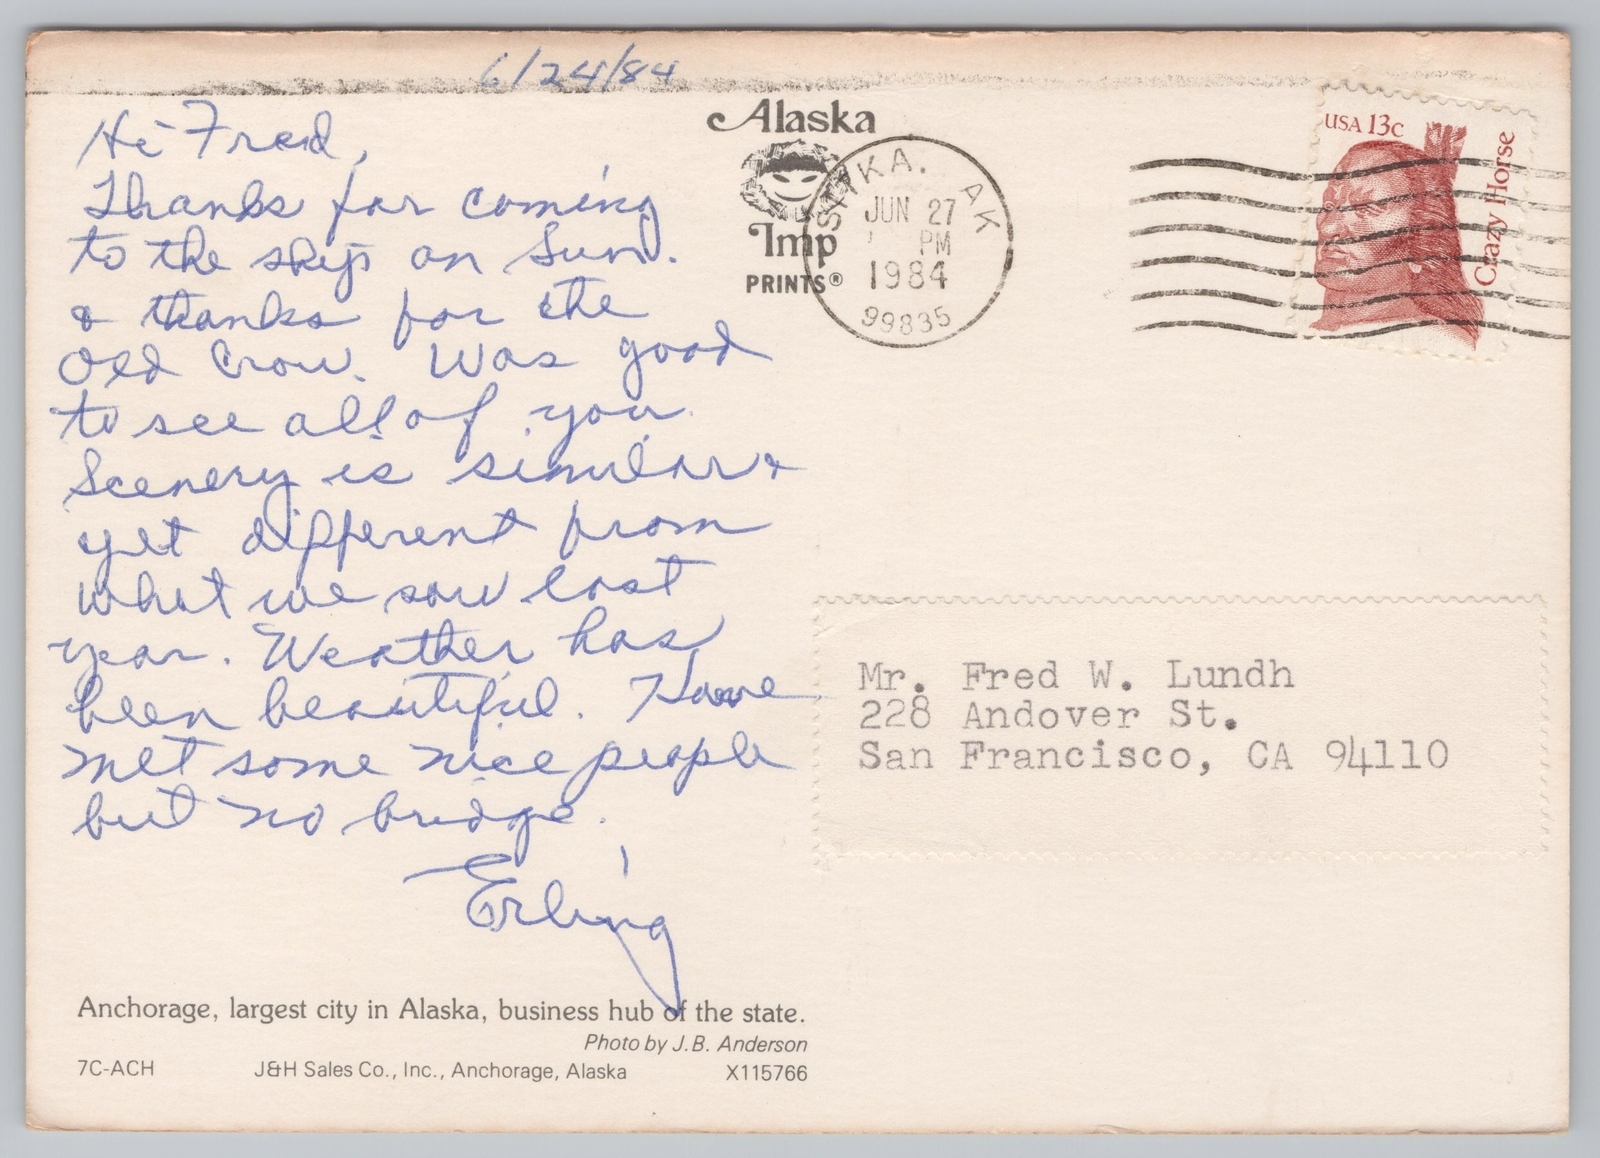 6/24/84
Hi Fred,
Thanks for coming
to the ship on Sun.
& thanks for the
Old Crow. Was good
to see all of you.
Scenery is similar &
yet different from
what we saw last
year. Weather has
been beautiful. Have
met some nice people
but no bridge.
Erling
Anchorage, largest city in Alaska, business hub of the state.
Photo by J.B. Anderson
7C-ACH J&H Sales Co., Inc., Anchorage, Alaska X115766
Alaska
Imp
PRINTS®
SITKA, AK
JUN 27
PM
1984
99835
USA 13c
Crazy Horse
Mr. Fred W. Lundh
228 Andover St.
San Francisco, CA 94110